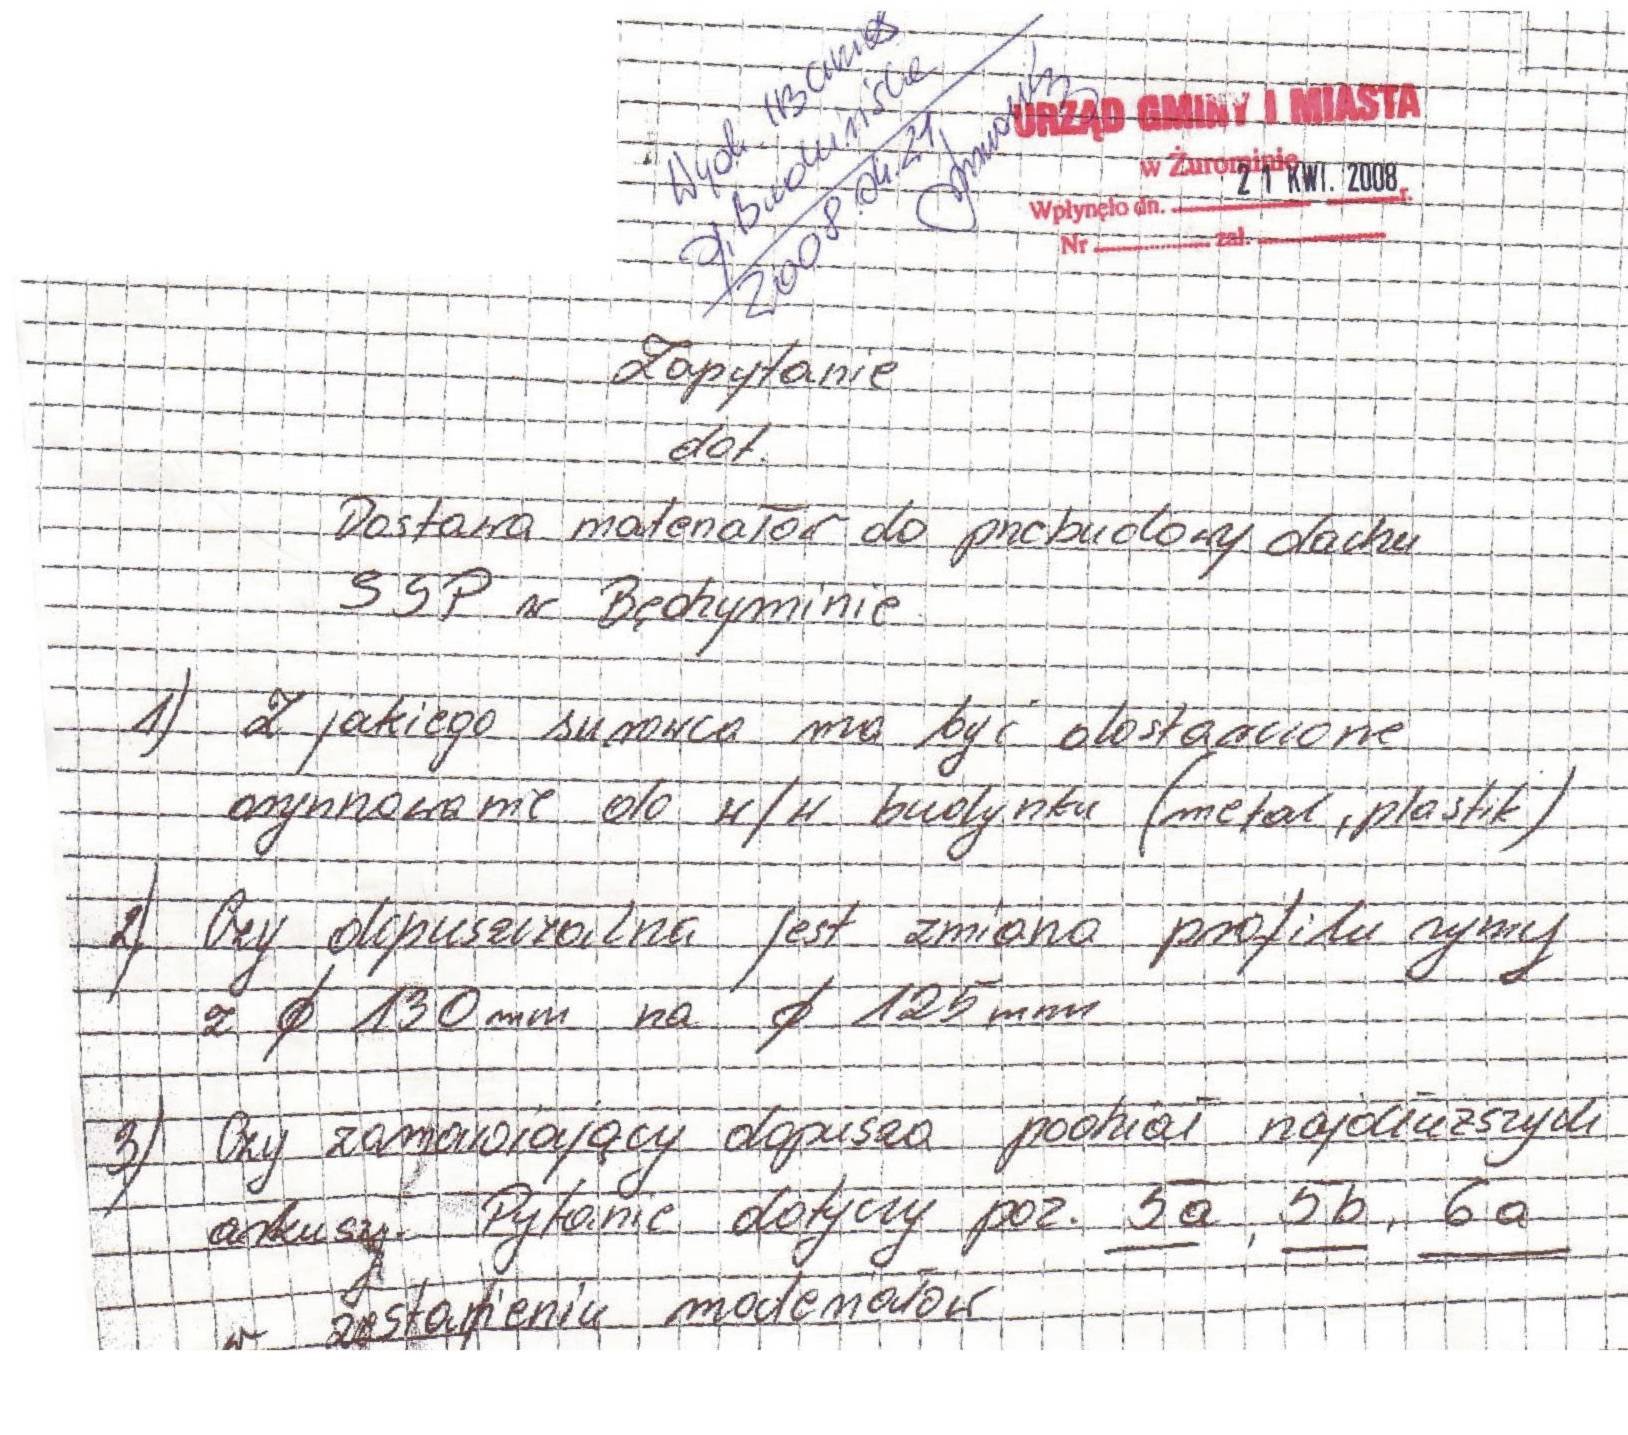 Wydz. IBGNiOŚ
2008.04.21
URZĄD GMINY I MIASTA
w Żurominie
21 KWI. 2008
Wpłynęło dn. r.
Nr zał.
Zapytanie
dot.
Dostawa materiałów do przebudowy dachu
SSP w Będzyminie.
1) Z jakiego surowca ma być dostarczone
orynnowanie do w/w budynku (metal, plastik)
2) Czy dopuszczalna jest zmiana profilu rynny
z ϕ 130 mm na ϕ 125 mm
3) Czy zamawiający dopuszcza podział najdłuższych
arkuszy. Pytanie dotyczy poz. 5a, 5b, 6a
w zestawieniu materiałów